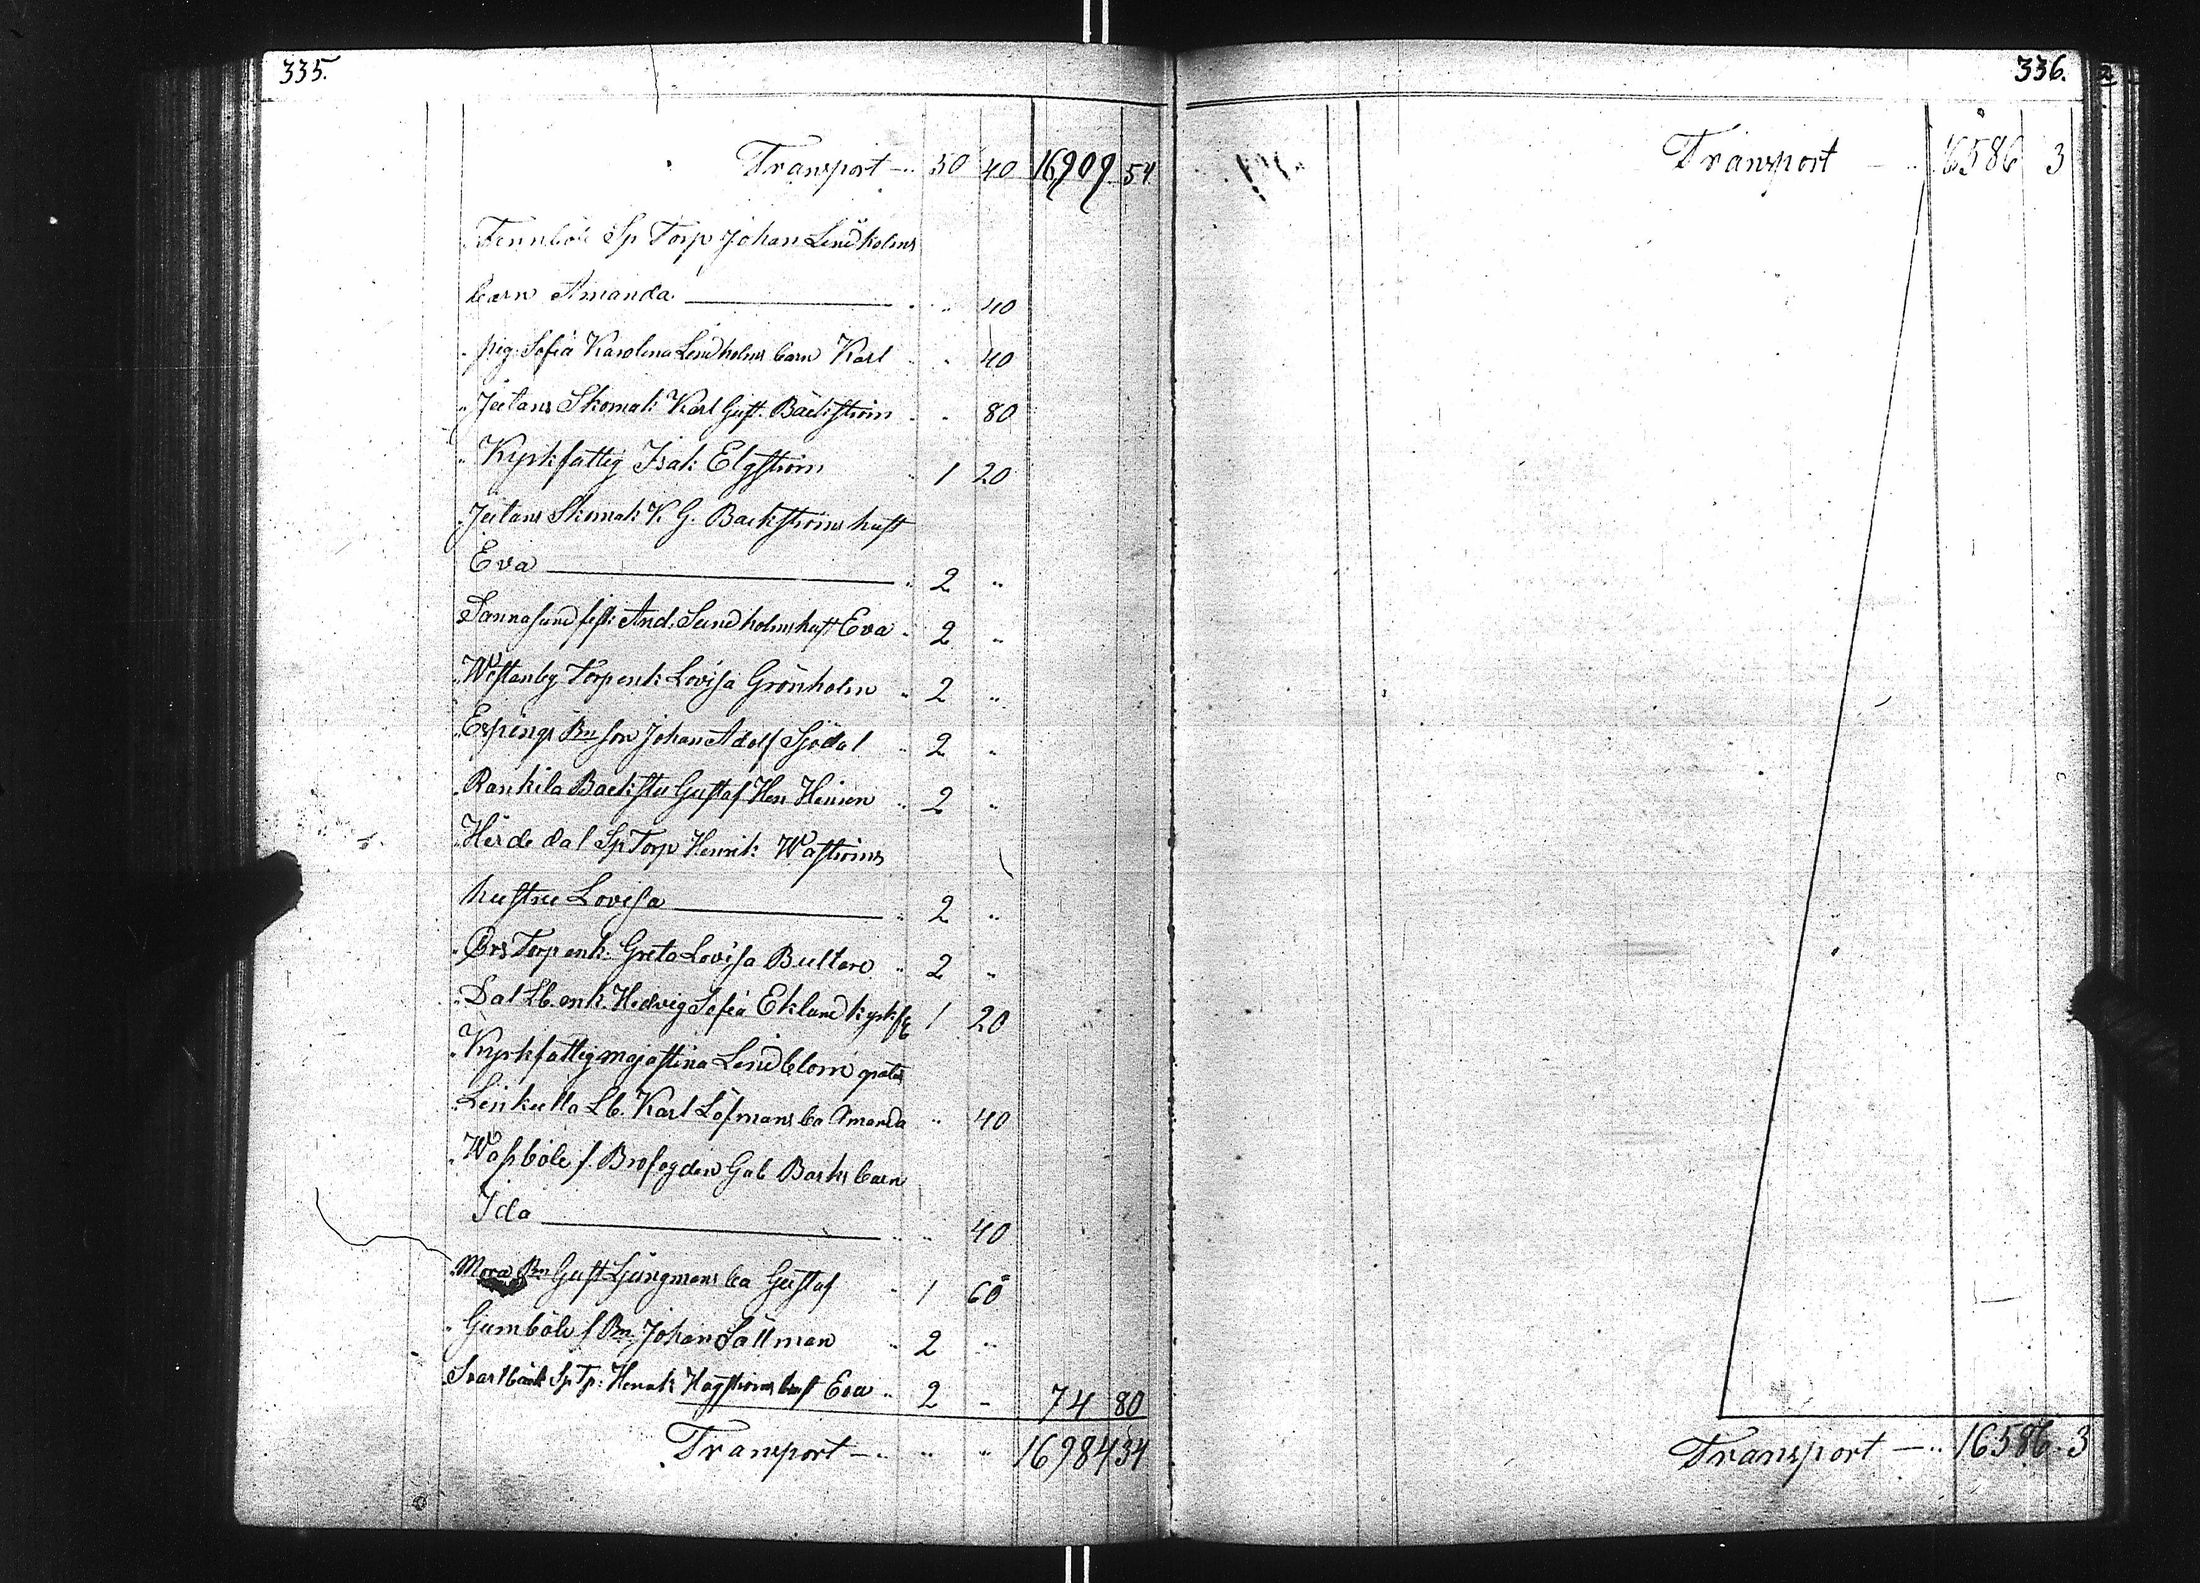 335.
Transport — 50 40 16909 54.
Fennböle Sp Torp Johan Lindholms
barn Amanda — " 40
" pig. Sofia Karolina Lindholms barn Karl " 40
" Jutans Skomak: Karl Gust. Bäckström " 80
" Kyrkfattig Isak Elgström " 1 20
" Jutans Skomak: K. G. Backströms hust
Eva — " 2 "
Sannasund And. Sundholms hust Eva " 2 "
" Westanby Torpenk: Lovisa Grönholm " 2 "
" Espings Bn son Johan Adolf Sjödal " 2 "
" Rankila Gustaf Hen " 2 "
" Herde dal Sp Torp Henrik Waströms
hustru Lovisa — " 2 "
" Örs Torpenk: Greta Lovisa Bultare " 2 "
" Dal Lb. enk. Hedvig Sofia Eklund kyrkf 1 20
" Kyrkfattig Majastina Lindblom gratis
" Linkulla Lb. Karl Löfmans ba Amanda " 40
" Wassböle f. Brofogden Gab Barks barn
Ida — " " 40
" Mora Bn Gust Ljungmans ba Gustaf " 1 60
" Gumböle f Bn Johan Sällman " 2 "
" Svartbäck Sp Tp: Henrik Hagströms hust Eva " 2 - 74 80
Transport — " " " 16984 34
336.
Transport — 16586 3
Transport — " 16586 3